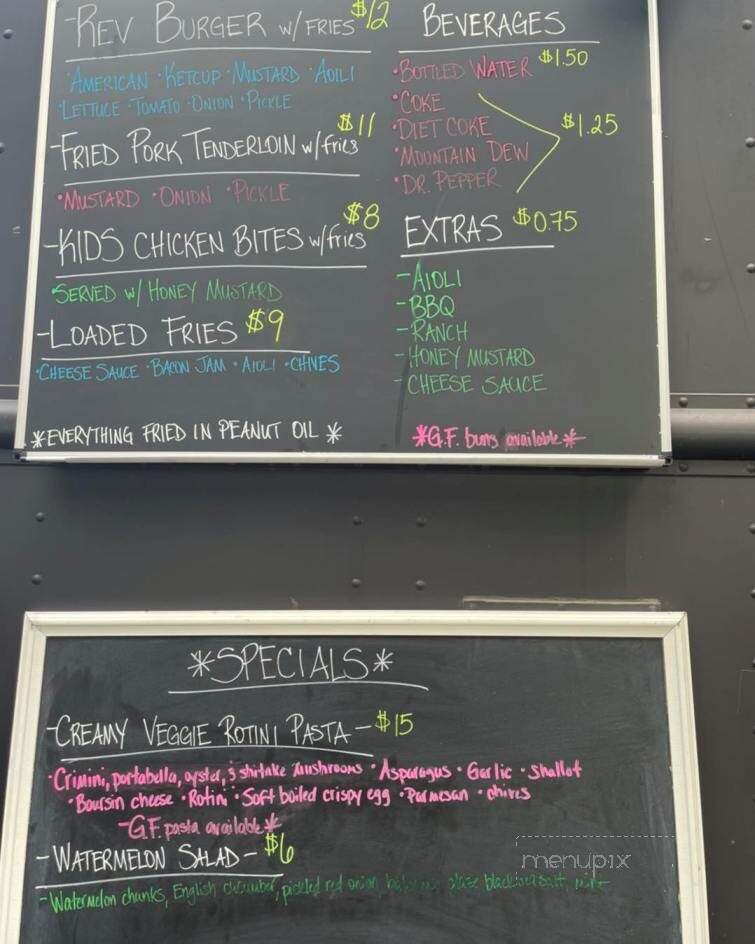 -REV BURGER w/ FRIES $12
·AMERICAN ·KETCUP ·MUSTARD ·AOILI
·LETTUCE ·TOMATO ·ONION ·PICKLE
-FRIED PORK TENDERLOIN w/fries $11
·MUSTARD ·ONION ·PICKLE
-KIDS CHICKEN BITES w/fries $8
·SERVED w/ HONEY MUSTARD
-LOADED FRIES $9
·CHEESE SAUCE ·BACON JAM ·AIOLI ·CHIVES
*EVERYTHING FRIED IN PEANUT OIL*
BEVERAGES
·BOTTLED WATER $1.50
·COKE
·DIET COKE $1.25
·MOUNTAIN DEW
·DR. PEPPER
EXTRAS $0.75
-AIOLI
-BBQ
-RANCH
-HONEY MUSTARD
-CHEESE SAUCE
*G.F. buns available*
*SPECIALS*
-CREAMY VEGGIE ROTINI PASTA- $15
·Crimini, portabella, oyster, & shitake mushrooms ·Asparagus ·Garlic ·Shallot
·Boursin cheese ·Rotini ·Soft boiled crispy egg ·Parmesan ·chives
-G.F. pasta available*
-WATERMELON SALAD- $6
-Watermelon chunks, English cucumber, pickled red onion, balsamic glaze, black sea salt, mint
menupix